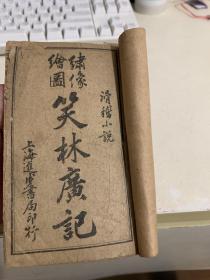 滑稽小説
繡像
繪圖
笑林廣記
上海進步書局印行